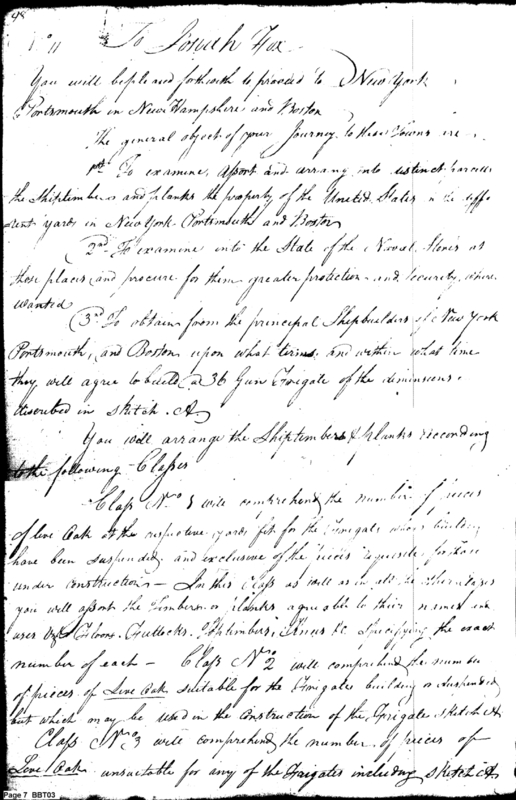 48
No 11 To Josiah Fox
You will be pleased forthwith to proceed to New York
Portsmouth in New Hampshire and Boston
The general object of your Journey to these Towns are
1st To examine, assort and arrang into distinct parcells
the Shiptimbers and planks the property of the United States in the diffe
rent yards in New York Portsmouth and Boston
2d To examine into the State of the Naval Stores at
those places, and procure for them greater protection and security, where
wanted
3d To obtain from the principal Shipbuilders of New York
Portsmouth, and Boston upon what terms, and within what time
they will agree to build a 36 Gun Frigate of the deminsions
discribed in sketch A
You will arrange the Shiptimbers & planks according
to the following Classes
Class No 1 will comprehend the number of pieces
of live Oak at the respective yards fit for the Frigate whose building
have been suspended, and exclusive of the pieces requisite for those
under construction — In this Class as well as in all the other Classes
you will assort the Timbers or planks agreable to their names and
uses Vizt Futtocks, Toptimbers, Knees &c Specifying the exact
number of each — Class No 2 will comprehend the number
of pieces of Live Oak suitable for the Frigates building or suspended
but which may be used in the construction of the Frigate, sketch A
Class No 3 will comprehend the number of pieces of
Live Oak unsuitable for any of the Fraigates including sketch A
Page 7 BBT03